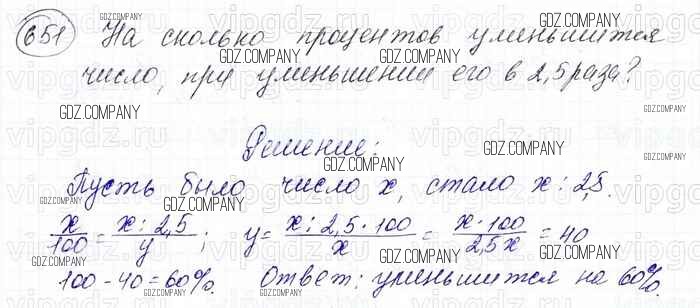 651 На сколько процентов уменьшится
число, при уменьшении его в 2,5 раза?
Решение:
Пусть было число x, стало x : 2,5.
x/100 = x : 2,5/y ; y = x : 2,5 · 100/x = x · 100/2,5x = 40
100 - 40 = 60%. Ответ: уменьшится на 60%.
GDZ.COMPANY
vipgdz.ru